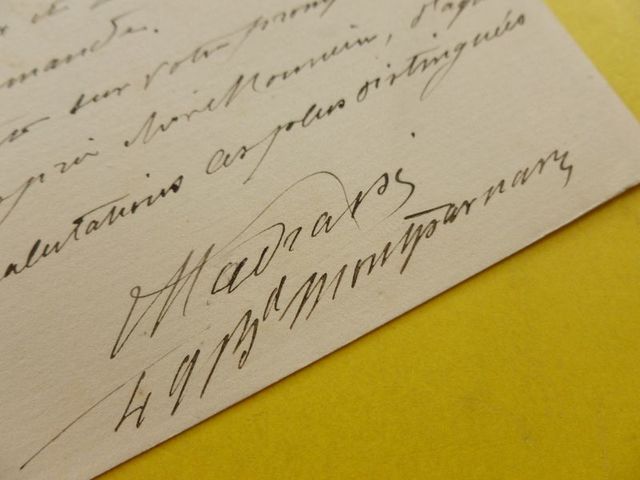 mande.
sur votre promp
Monsieur, d'ag
salutations les plus distinguées
Madrassi
49 Bd Montparnasse